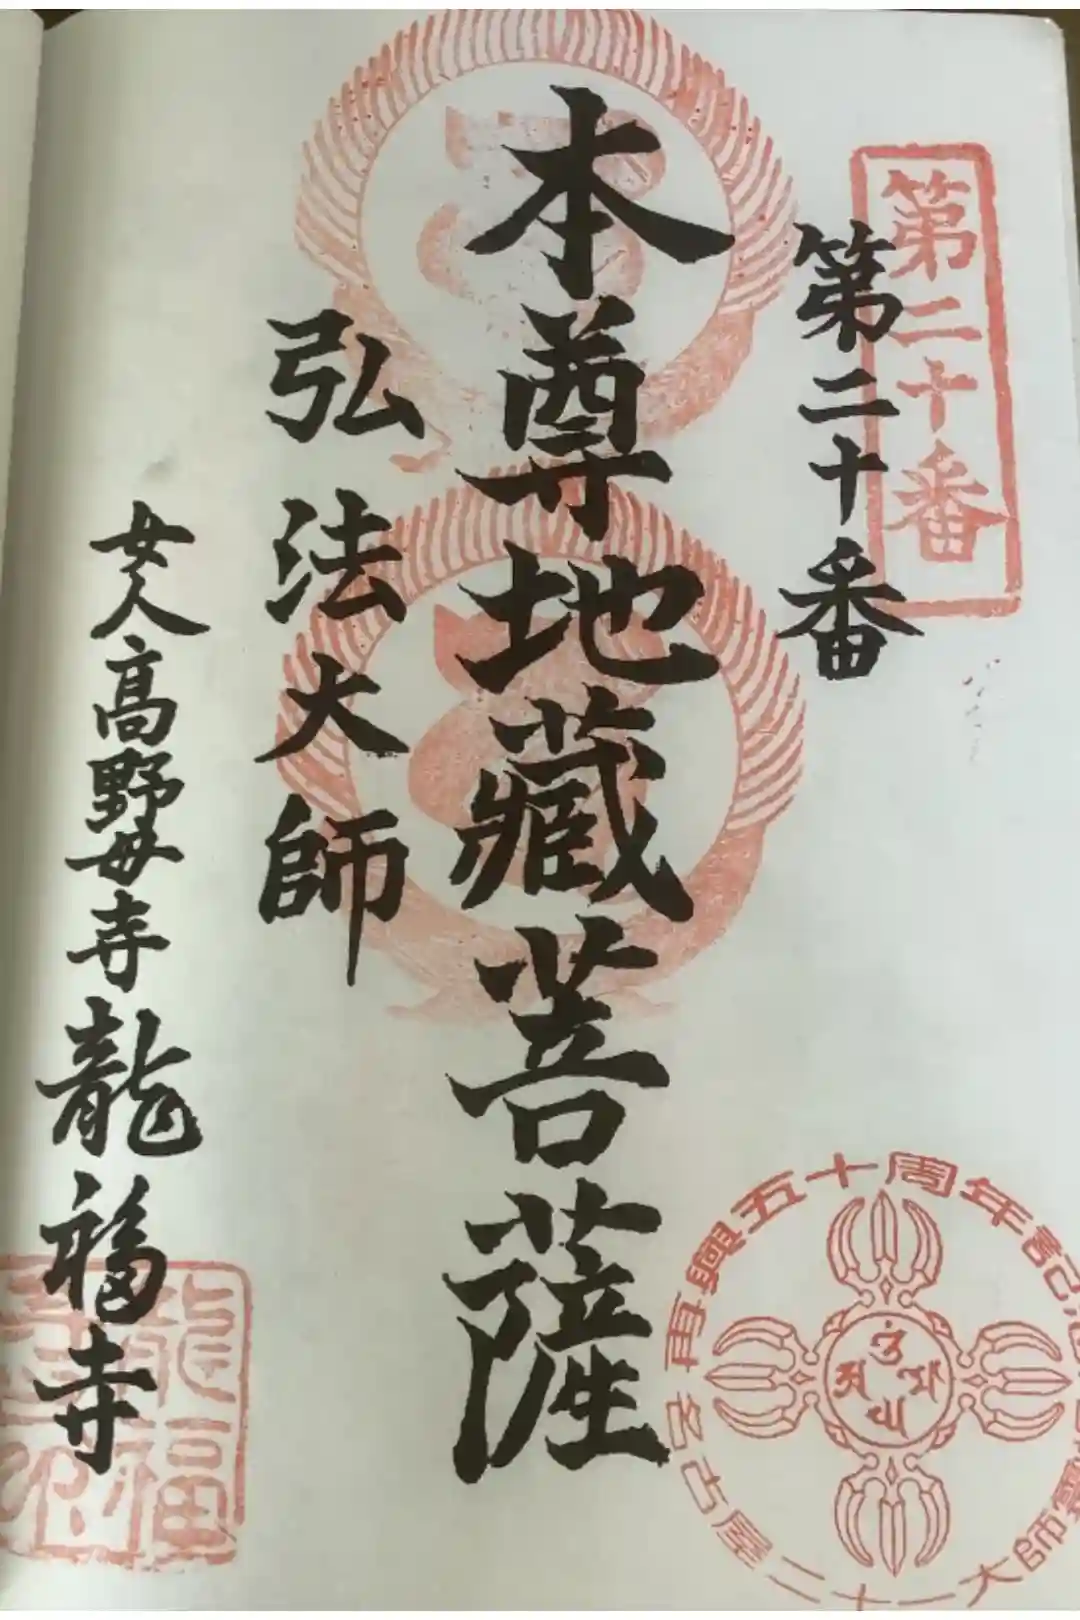 第二十番
第二十番
本尊地藏菩薩
弘法大師
女人高野母寺龍福寺
再興五十周年記
名古屋二十一大師霊
龍福